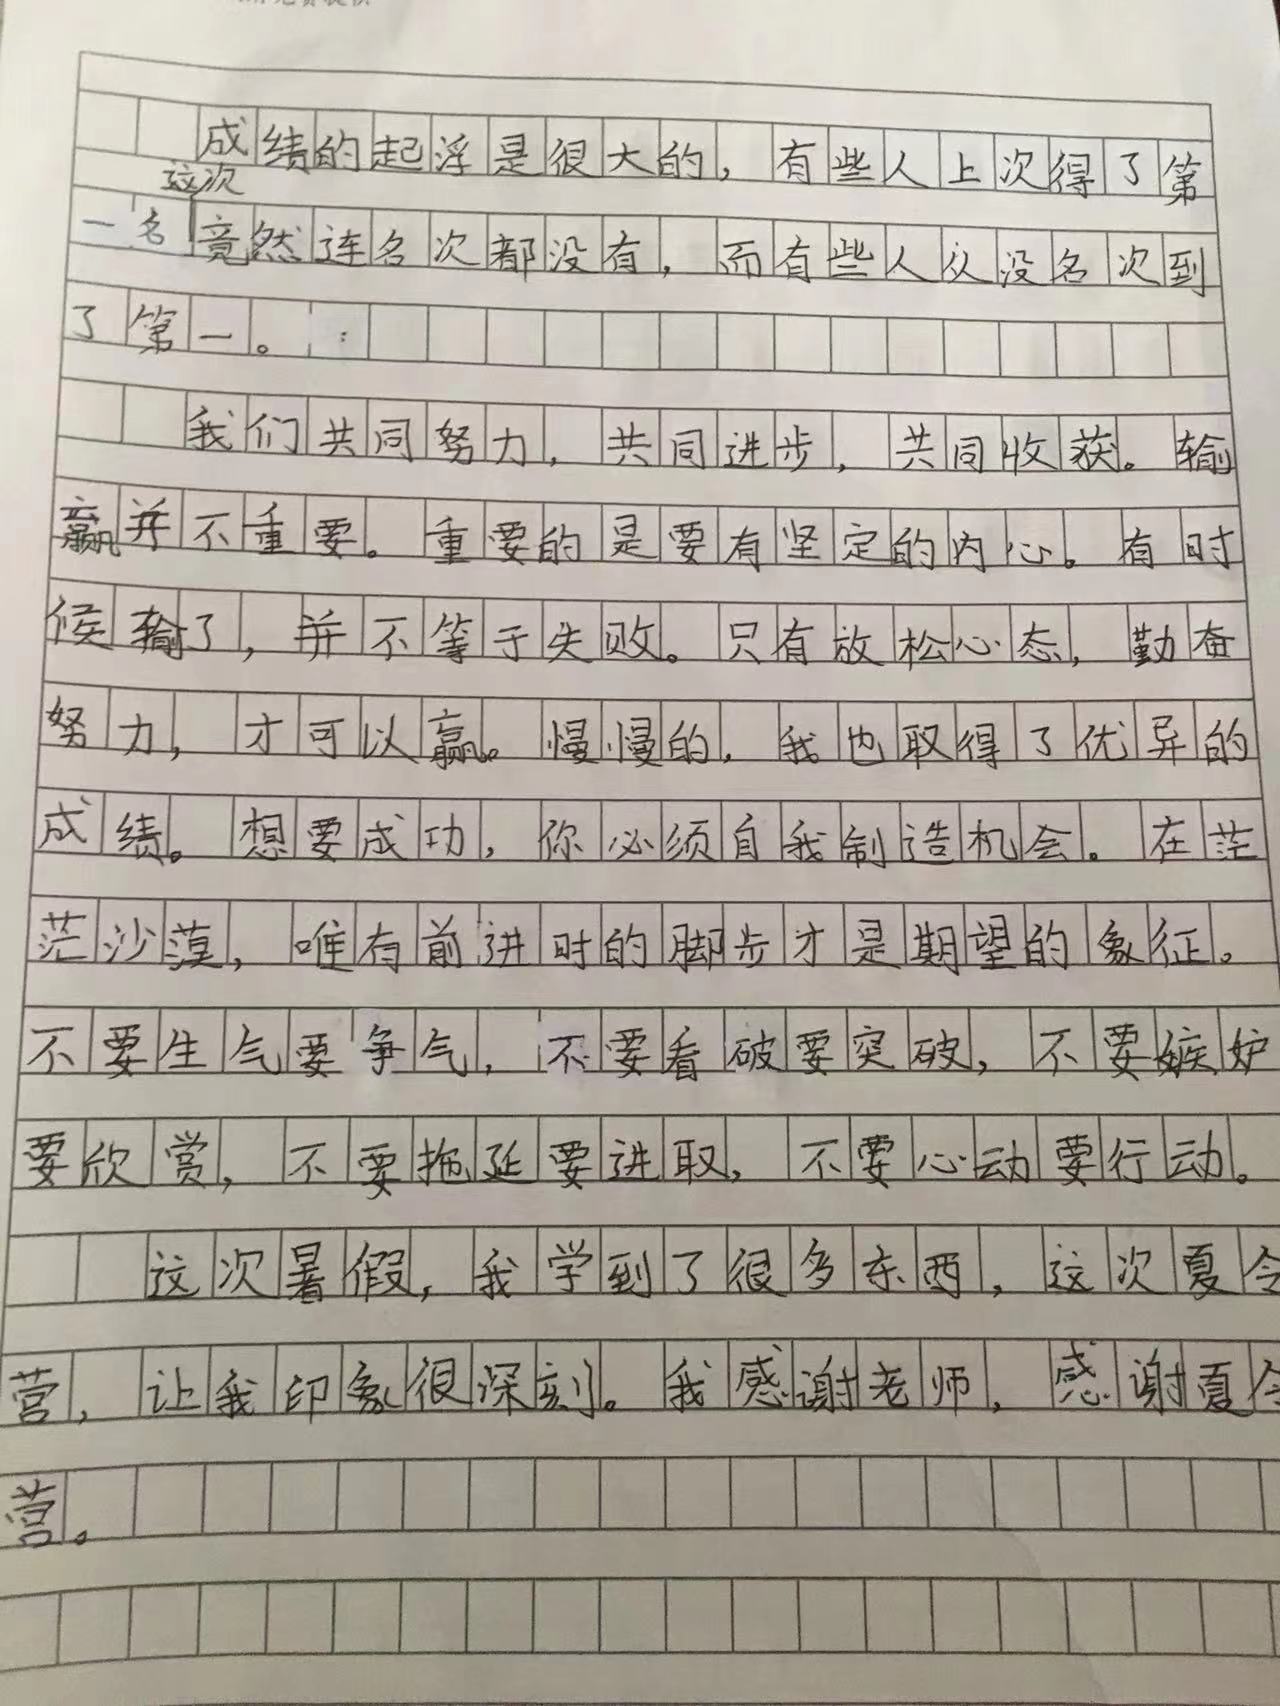 成绩的起浮是很大的，有些人上次得了第
一名这次竟然连名次都没有，而有些人从没名次到
了第一。
我们共同努力，共同进步，共同收获。输
赢并不重要。重要的是要有坚定的内心。有时
候输了，并不等于失败。只有放松心态，勤奋
努力，才可以赢。慢慢的，我也取得了优异的
成绩。想要成功，你必须自我制造机会。在茫
茫沙漠，唯有前进时的脚步才是期望的象征。
不要生气要争气，不要看破要突破，不要嫉妒
要欣赏，不要拖延要进取，不要心动要行动。
这次暑假，我学到了很多东西，这次夏令
营，让我印象很深刻。我感谢老师，感谢夏令
营。